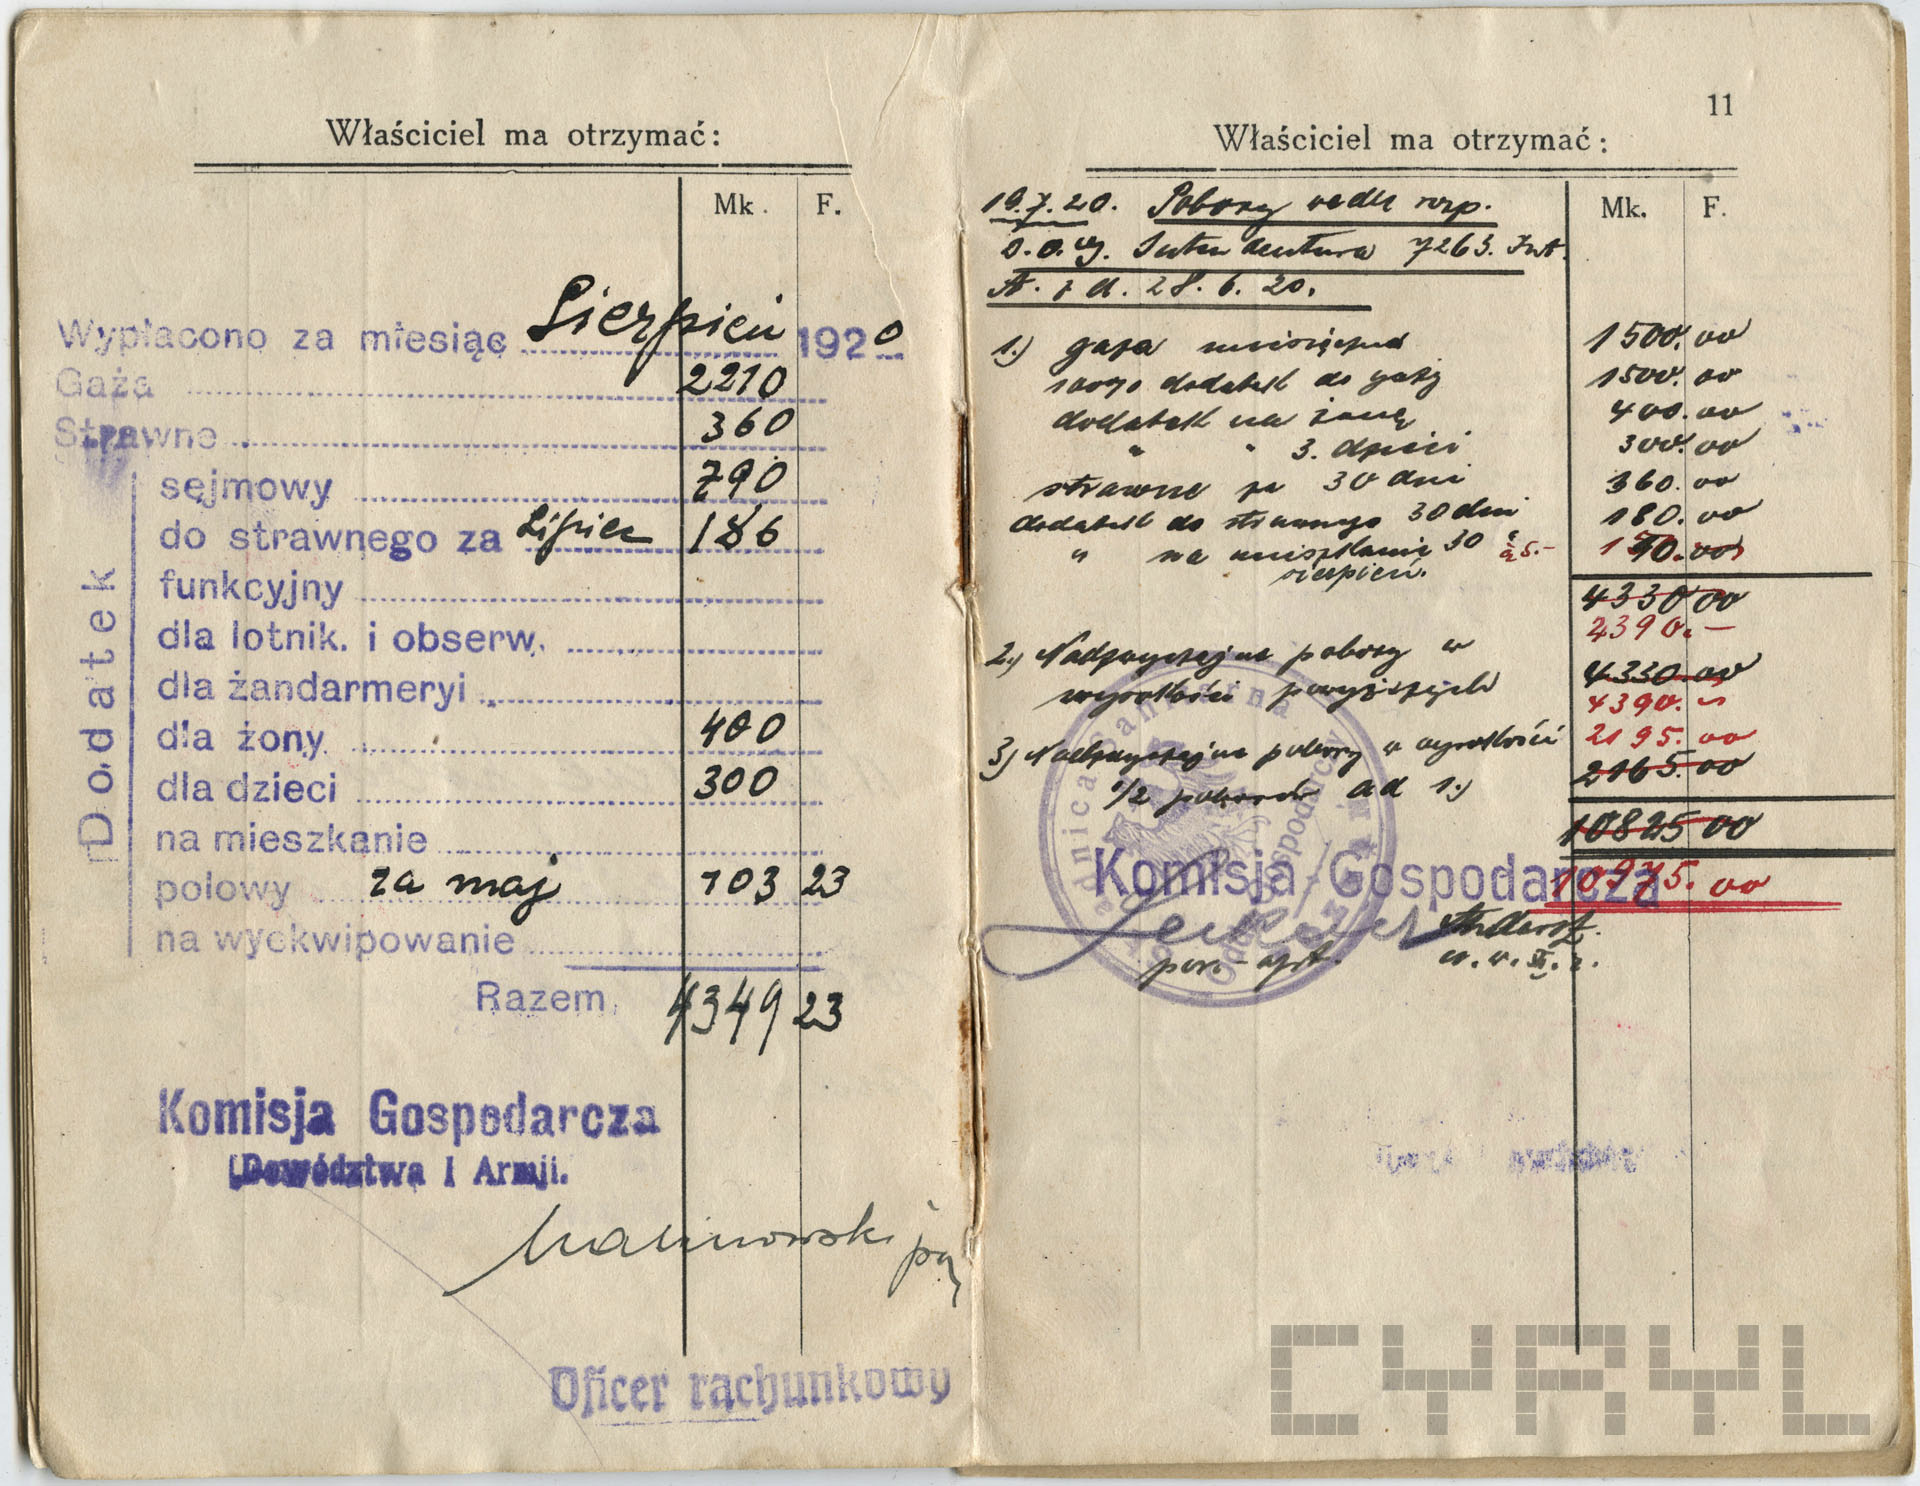 Właściciel ma otrzymać:
Mk. F.
Wypłacono za miesiąc Sierpień 1920
Gaża 2210
Strawne 360
Dodatek
sejmowy 790
do strawnego za Lipiec 186
funkcyjny
dla lotnik. i obserw.
dla żandarmeryi
dla żony 400
dla dzieci 300
na mieszkanie
polowy za maj 103 23
na wyekwipowanie
Razem 4349 23
Komisja Gospodarcza
Dowództwa I Armji.
Malinowski
Oficer rachunkowy
11
Właściciel ma otrzymać:
Mk. F.
19.7.20. Pobory wedle rozp.
D.O.G. Intendentura 7263. Int.
A. z d. 28.6.20.
1.) gaża miesięczna 1500.00
100% dodatek do gaży 1500.00
dodatek na żonę 400.00
" " 3. dzieci 300.00
strawne za 30 dni 360.00
dodatek do strawnego 30 dni 180.00
" na mieszkanie 30 à 5.-
sierpień.
4330 00
4390.—
2.) Nadzwyczajne pobory w
wysokości powyższych
4330.00
4390.—
3.) Nadzwyczajne pobory w wysokości 2195.00
1/2 poborów ad 1.) 2165.00
10825 00
Komisja Gospodarcza
10975.00
CYRYL